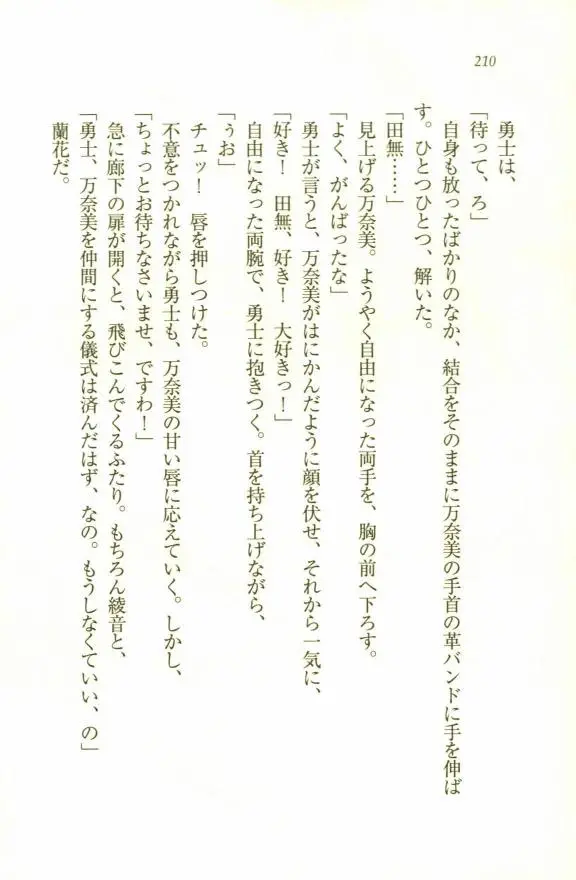 210
勇士は、
「待って、ろ」
自身も放ったばかりのなか、結合をそのままに万奈美の手首の革バンドに手を伸ば
す。ひとつひとつ、解いた。
「田無……」
見上げる万奈美。ようやく自由になった両手を、胸の前へ下ろす。
「よく、がんばったな」
勇士が言うと、万奈美がはにかんだように顔を伏せ、それから一気に、
「好き！　田無、好き！　大好きっ！」
自由になった両腕で、勇士に抱きつく。首を持ち上げながら、
「ぅお」
チュッ！　唇を押しつけた。
不意をつかれながら勇士も、万奈美の甘い唇に応えていく。しかし、
「ちょっとお待ちなさいませ、ですわ！」
急に廊下の扉が開くと、飛びこんでくるふたり。もちろん綾音と、
「勇士、万奈美を仲間にする儀式は済んだはず、なの。もうしなくていい、の」
蘭花だ。